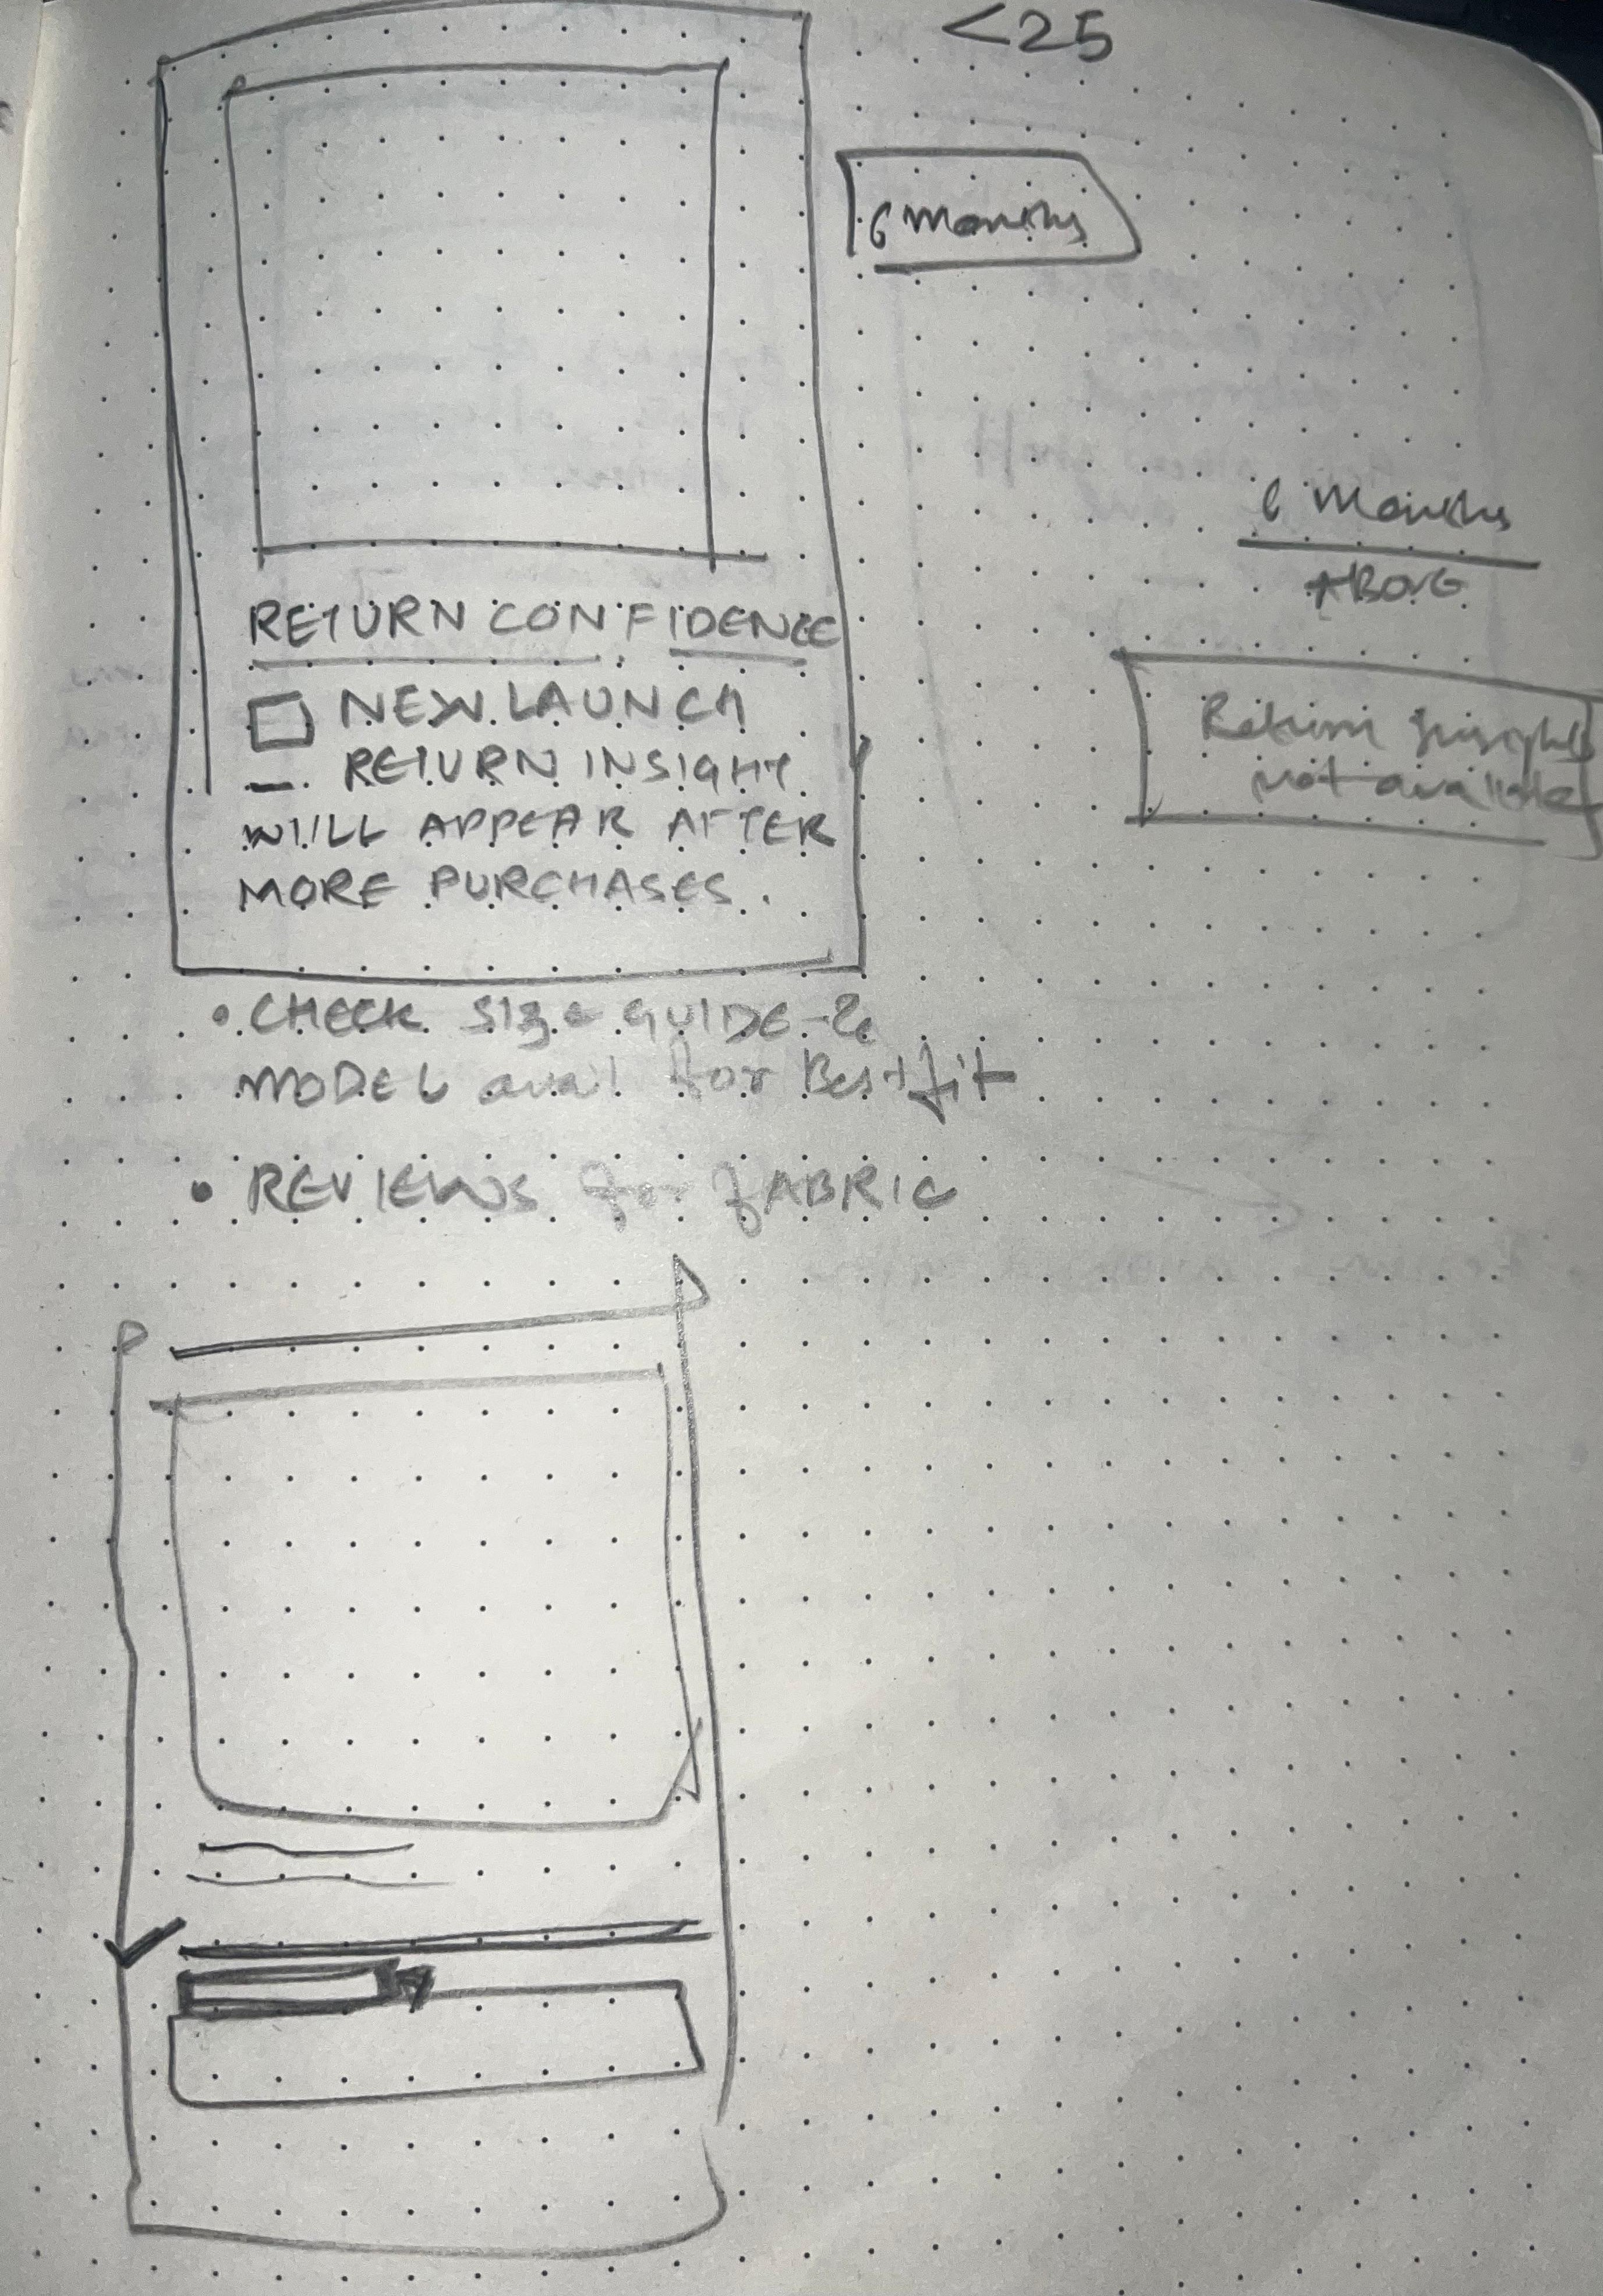 <25
6 Months
6 Months
ABOVE
Return Insights
not available
RETURN CONFIDENCE
NEW LAUNCH
RETURN INSIGHT
WILL APPEAR AFTER
MORE PURCHASES.
• CHECK Size GUIDE &
MODEL avai for Best fit
• REVIEWS for FABRIC